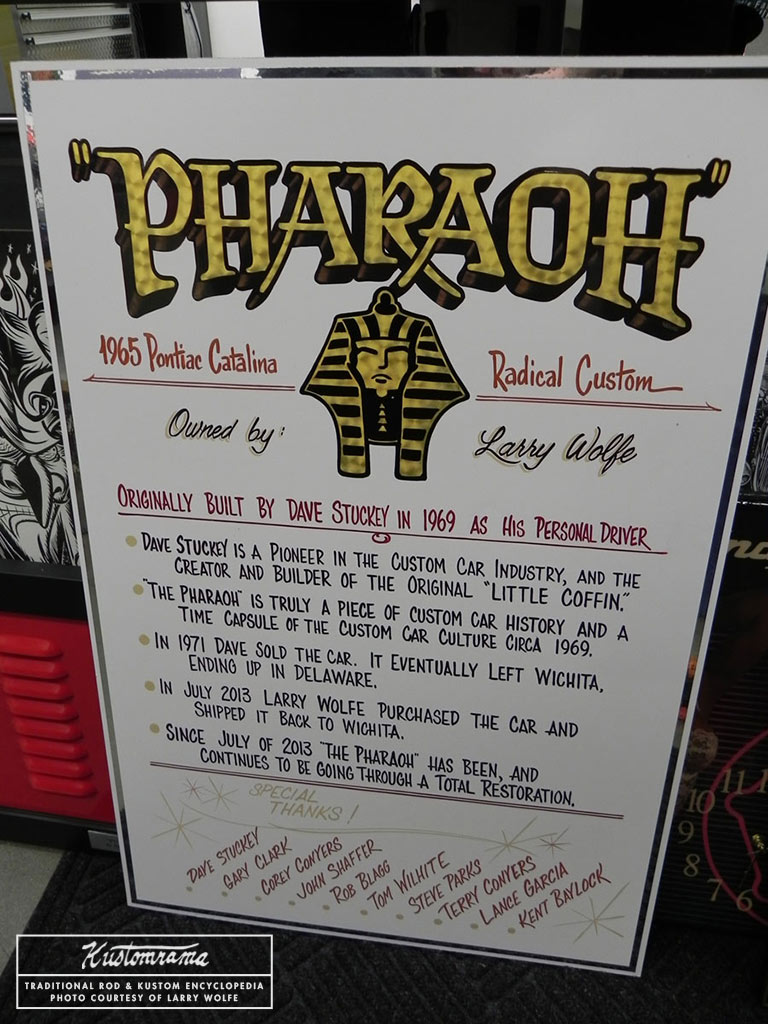 "PHARAOH"
1965 Pontiac Catalina
Radical Custom
Owned by:
Larry Wolfe
ORIGINALLY BUILT BY DAVE STUCKEY IN 1969 AS HIS PERSONAL DRIVER
• DAVE STUCKEY IS A PIONEER IN THE CUSTOM CAR INDUSTRY, AND THE
CREATOR AND BUILDER OF THE ORIGINAL "LITTLE COFFIN."
• "THE PHARAOH" IS TRULY A PIECE OF CUSTOM CAR HISTORY AND A
TIME CAPSULE OF THE CUSTOM CAR CULTURE CIRCA 1969.
• IN 1971 DAVE SOLD THE CAR. IT EVENTUALLY LEFT WICHITA,
ENDING UP IN DELAWARE.
• IN JULY 2013 LARRY WOLFE PURCHASED THE CAR AND
SHIPPED IT BACK TO WICHITA.
• SINCE JULY OF 2013 "THE PHARAOH" HAS BEEN, AND
CONTINUES TO BE GOING THROUGH A TOTAL RESTORATION.
SPECIAL
THANKS!
• DAVE STUCKEY
• GARY CLARK
• COREY CONYERS
• JOHN SHAFFER
• ROB BLAGG
• TOM WILHITE
• STEVE PARKS
• TERRY CONYERS
• LANCE GARCIA
• KENT BAYLOCK
11
10
9
8
7
6
Kustomrama
TRADITIONAL ROD & KUSTOM ENCYCLOPEDIA
PHOTO COURTESY OF LARRY WOLFE